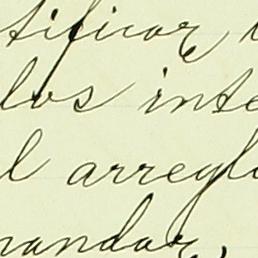 tificar
los inte
l arreglo
mandar,